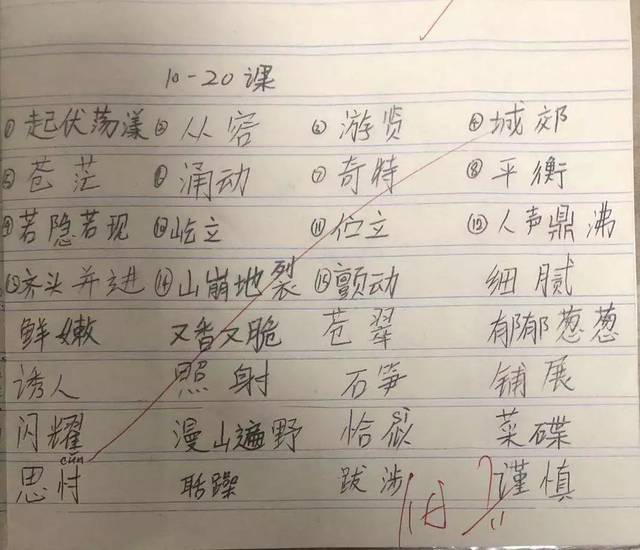 10-20课
①起伏荡漾 ②从容 ③游贤 ④城郊
⑤苍茫 ⑥涌动 ⑦奇特 ⑧平衡
⑨若隐若现 ⑩屹立 ⑪位立 ⑫人声鼎沸
⑬齐头并进 ⑭山崩地裂 ⑮颤动 细腻
鲜嫩 又香又脆 苍翠 郁郁葱葱
诱人 照射 石笋 铺展
闪耀 漫山遍野 恰似 sì 菜碟
思忖 cǔn 聒躁 跋涉 谨慎